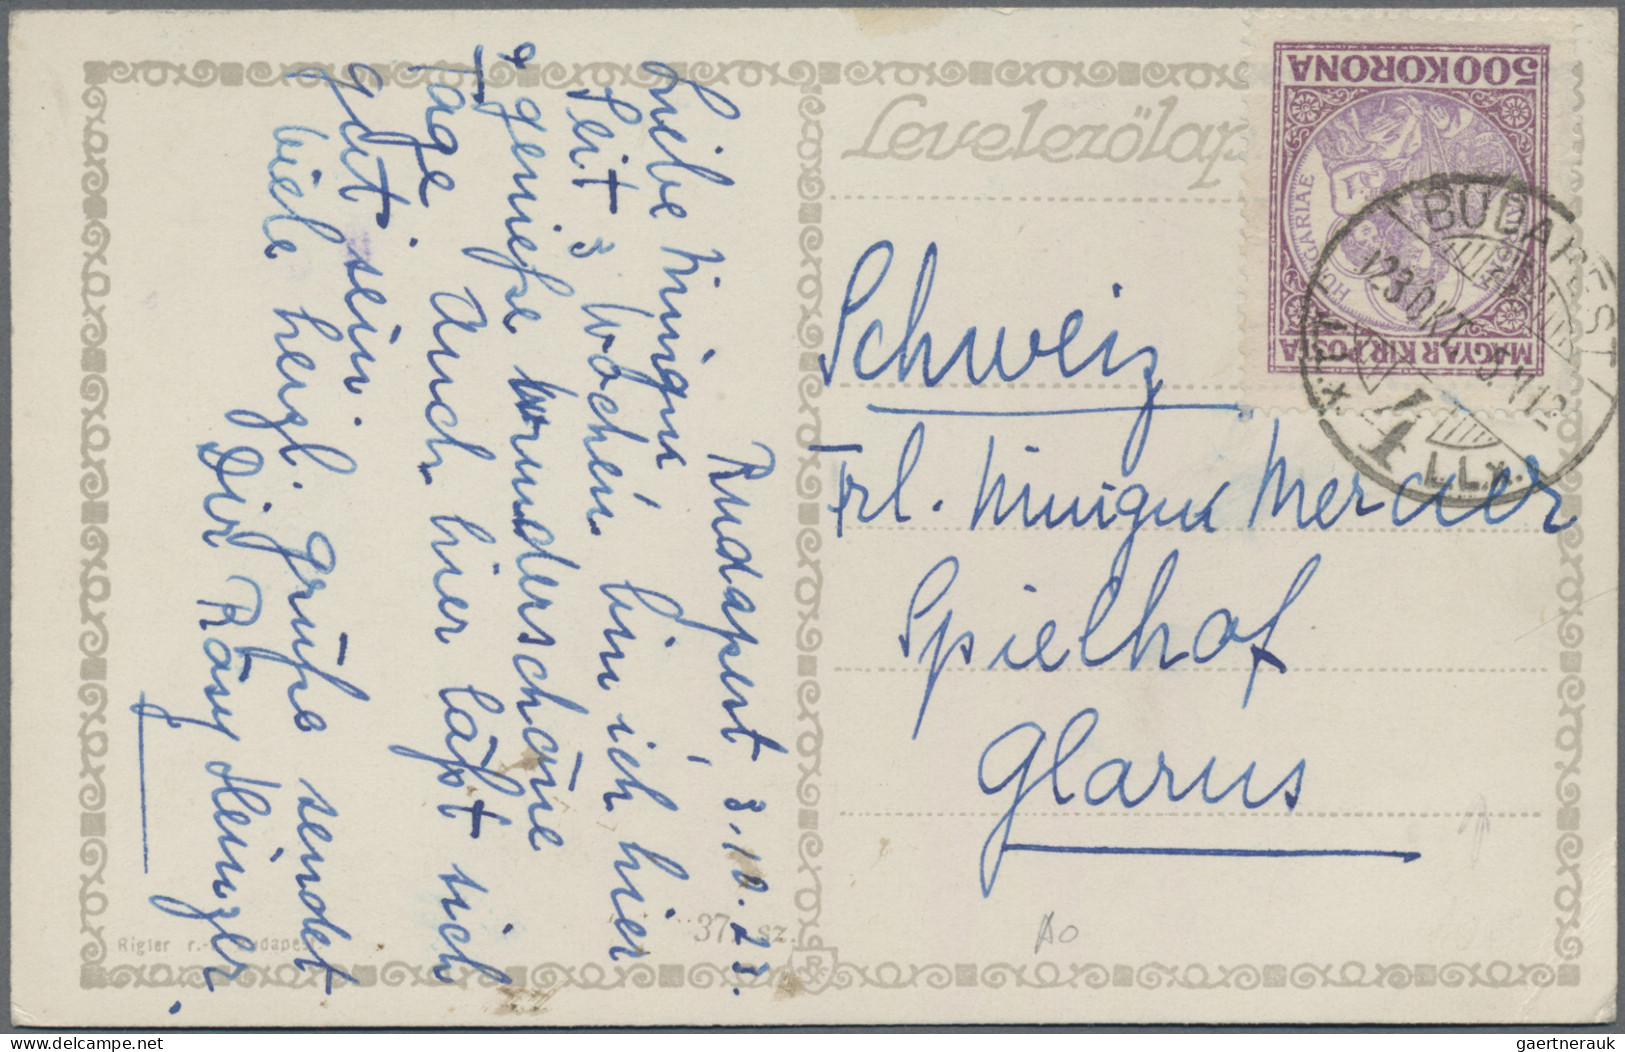 Levelezőlap
500 KORONA
HUNGARIAE
MAGYAR KIR. POSTA
BUDAPEST
923 OKT.
Budapest, 3.10.23.
Seit 3 Wochen bin ich hier
& genieße wunderschöne
Tage. Auch hier läßt sich
gut sein.
Viele herzl. Grüße sendet
Dir
Schweiz
Frl. Mercier
Spielhof
Glarus
Rigler r.-t. Budapest.
37. sz.
gaertnerauk